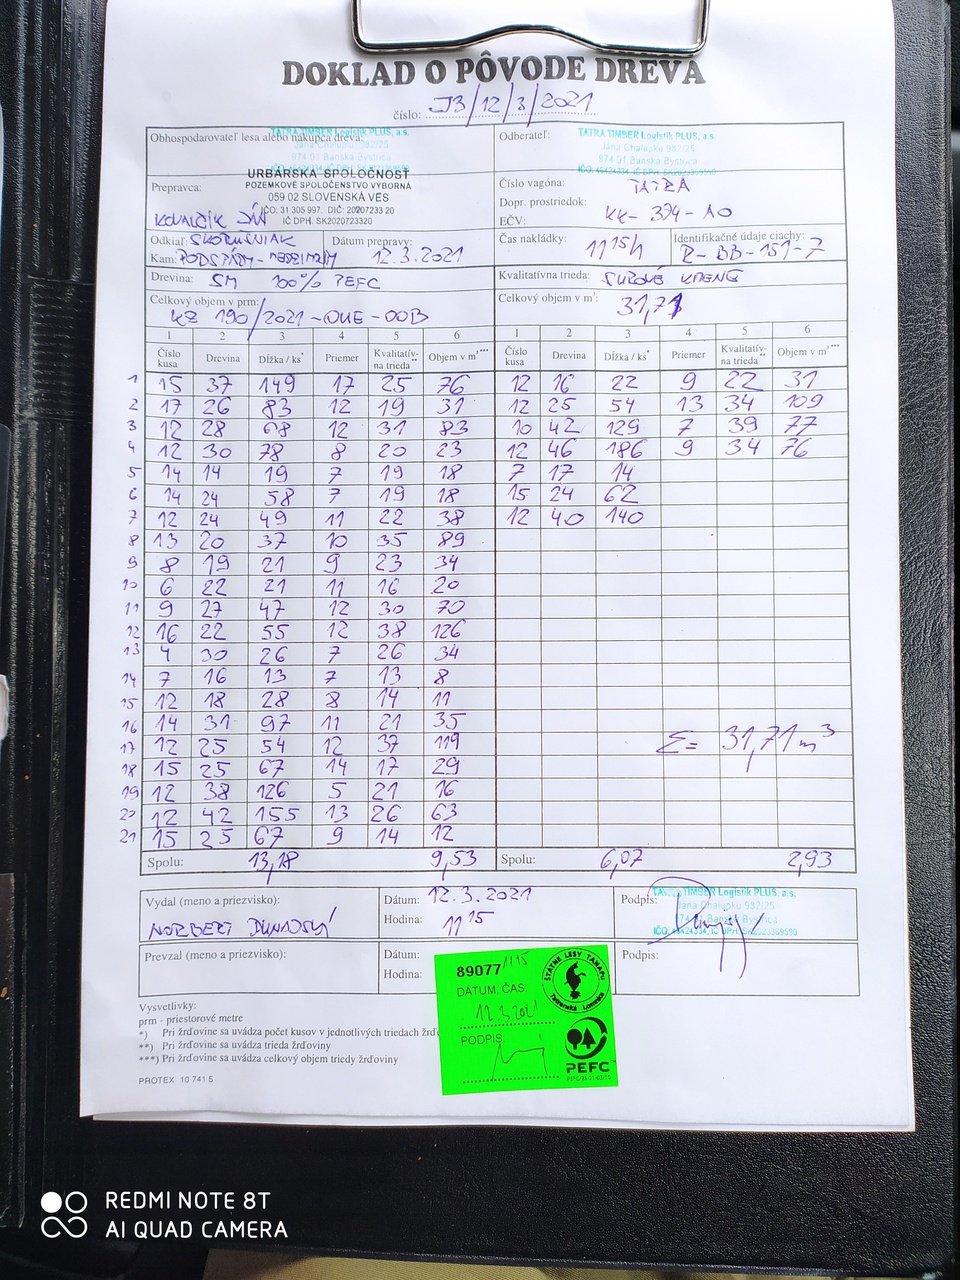 DOKLAD O PÔVODE DREVA
číslo: J3/12/3/2021
Obhospodarovateľ lesa alebo nákupca dreva:
TATRA TIMBER Logistik PLUS, a.s.
Jána Chalupku 982/25
974 01 Banská Bystrica
URBÁRSKA SPOLOČNOSŤ
POZEMKOVÉ SPOLOČENSTVO VÝBORNÁ
059 02 SLOVENSKÁ VES
IČO: 31 305 997. DIČ: 2020723320
IČ DPH. SK2020723320
Prepravca:
KOVALČIK JÁN
Odberateľ:
TATRA TIMBER Logistik PLUS, a.s.
Jána Chalupku 982/25
974 01 Banská Bystrica
Číslo vagóna: TATRA
Dopr. prostriedok:
EČV: KK-374-AO
Odkiaľ: SKORUŠNIAK
Kam: PODSPÁDY-
Dátum prepravy:
12.3.2021
Čas nakládky: 11 15 h
Identifikačné údaje ciachy:
R-BB-151-7
Drevina: SM 100% PEFC
Kvalitatívna trieda: SUROVÉ KMENE
Celkový objem v prm:
KZ 190/2021-OUE-OOB
Celkový objem v m³: 31,71
1 2 3 4 5 6 1 2 3 4 5 6
Číslo kusa Drevina Dĺžka / ks* Priemer Kvalitatív- na trieda** Objem v m³*** Číslo kusa Drevina Dĺžka / ks* Priemer Kvalitatív- na trieda** Objem v m³***
1 15 37 149 17 25 76 12 16 22 9 22 31
2 17 26 83 12 19 31 12 25 54 13 34 109
3 12 28 68 12 31 83 10 42 129 7 39 77
4 12 30 78 8 20 23 12 46 186 9 34 76
5 14 14 19 7 19 18 7 17 14
6 14 24 58 7 19 18 15 24 62
7 12 24 49 11 22 38 12 40 140
8 13 20 37 10 35 89
9 8 19 21 9 23 34
10 6 22 21 11 16 20
11 9 27 47 12 30 70
12 16 22 55 12 38 126
13 4 30 26 7 26 34
14 7 16 13 7 13 8
15 12 18 28 8 14 11
16 14 31 97 11 21 35
17 12 25 54 12 37 119
18 15 25 67 14 17 29
19 12 38 126 5 21 16
20 12 42 155 13 26 63
21 15 25 67 9 14 12
Σ = 31,71 m³
Spolu: 13,18 9,53 Spolu: 6,07 2,93
Vydal (meno a priezvisko):
NORBERT
Dátum: 12.3.2021
Hodina: 11 15
Podpis:
TATRA TIMBER Logistik PLUS, a.s.
Jána Chalupku 982/25
974 01 Banská Bystrica
Prevzal (meno a priezvisko):
Dátum:
Hodina:
Podpis:
89077/115
DÁTUM, ČAS:
12.3.2021
PODPIS
ŠTÁTNE LESY TANAPU
Tatranská Lomnica
PEFC
Vysvetlivky:
prm - priestorové metre
*) Pri žrďovine sa uvádza počet kusov v jednotlivých triedach
**) Pri žrďovine sa uvádza trieda žrďoviny
***) Pri žrďovine sa uvádza celkový objem triedy žrďoviny
PROTEX 10 741 5
REDMI NOTE 8T
AI QUAD CAMERA